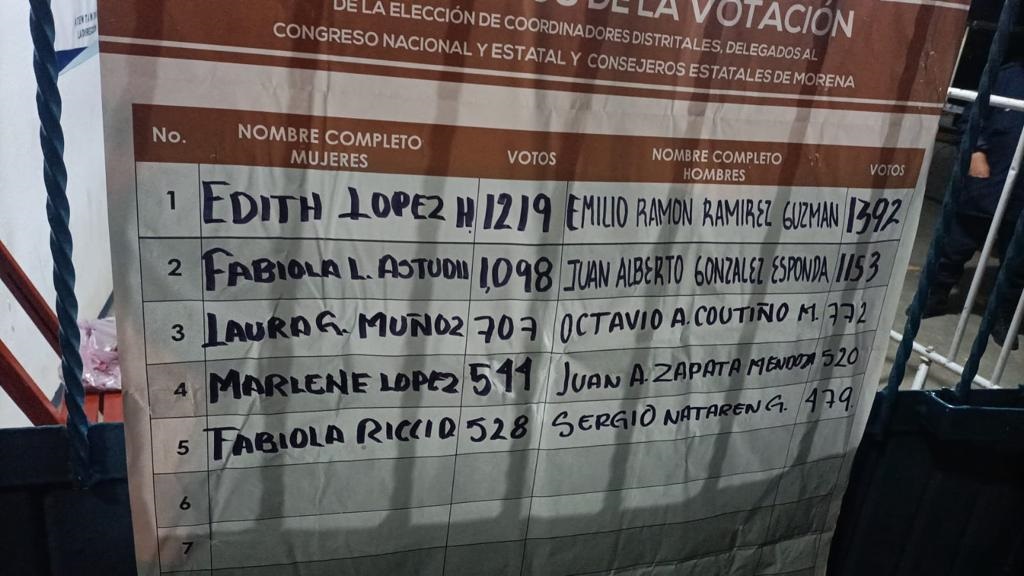 DE LA VOTACIÓN
DE LA ELECCIÓN DE COORDINADORES DISTRITALES, DELEGADOS AL
CONGRESO NACIONAL Y ESTATAL Y CONSEJEROS ESTATALES DE MORENA
No. NOMBRE COMPLETO MUJERES VOTOS NOMBRE COMPLETO HOMBRES VOTOS
1 EDITH LOPEZ H. 1219 EMILIO RAMON RAMIREZ GUZMAN 1392
2 FABIOLA L. ASTUDILL 1,098 JUAN ALBERTO GONZALEZ ESPONDA 1153
3 LAURA G. MUÑOZ 707 OCTAVIO A. COUTIÑO M. 772
4 MARLENE LOPEZ JUAN A. ZAPATA MENDOZA 520
5 FABIOLA RICCI 528 SERGIO NATAREN G. 479.
6
7